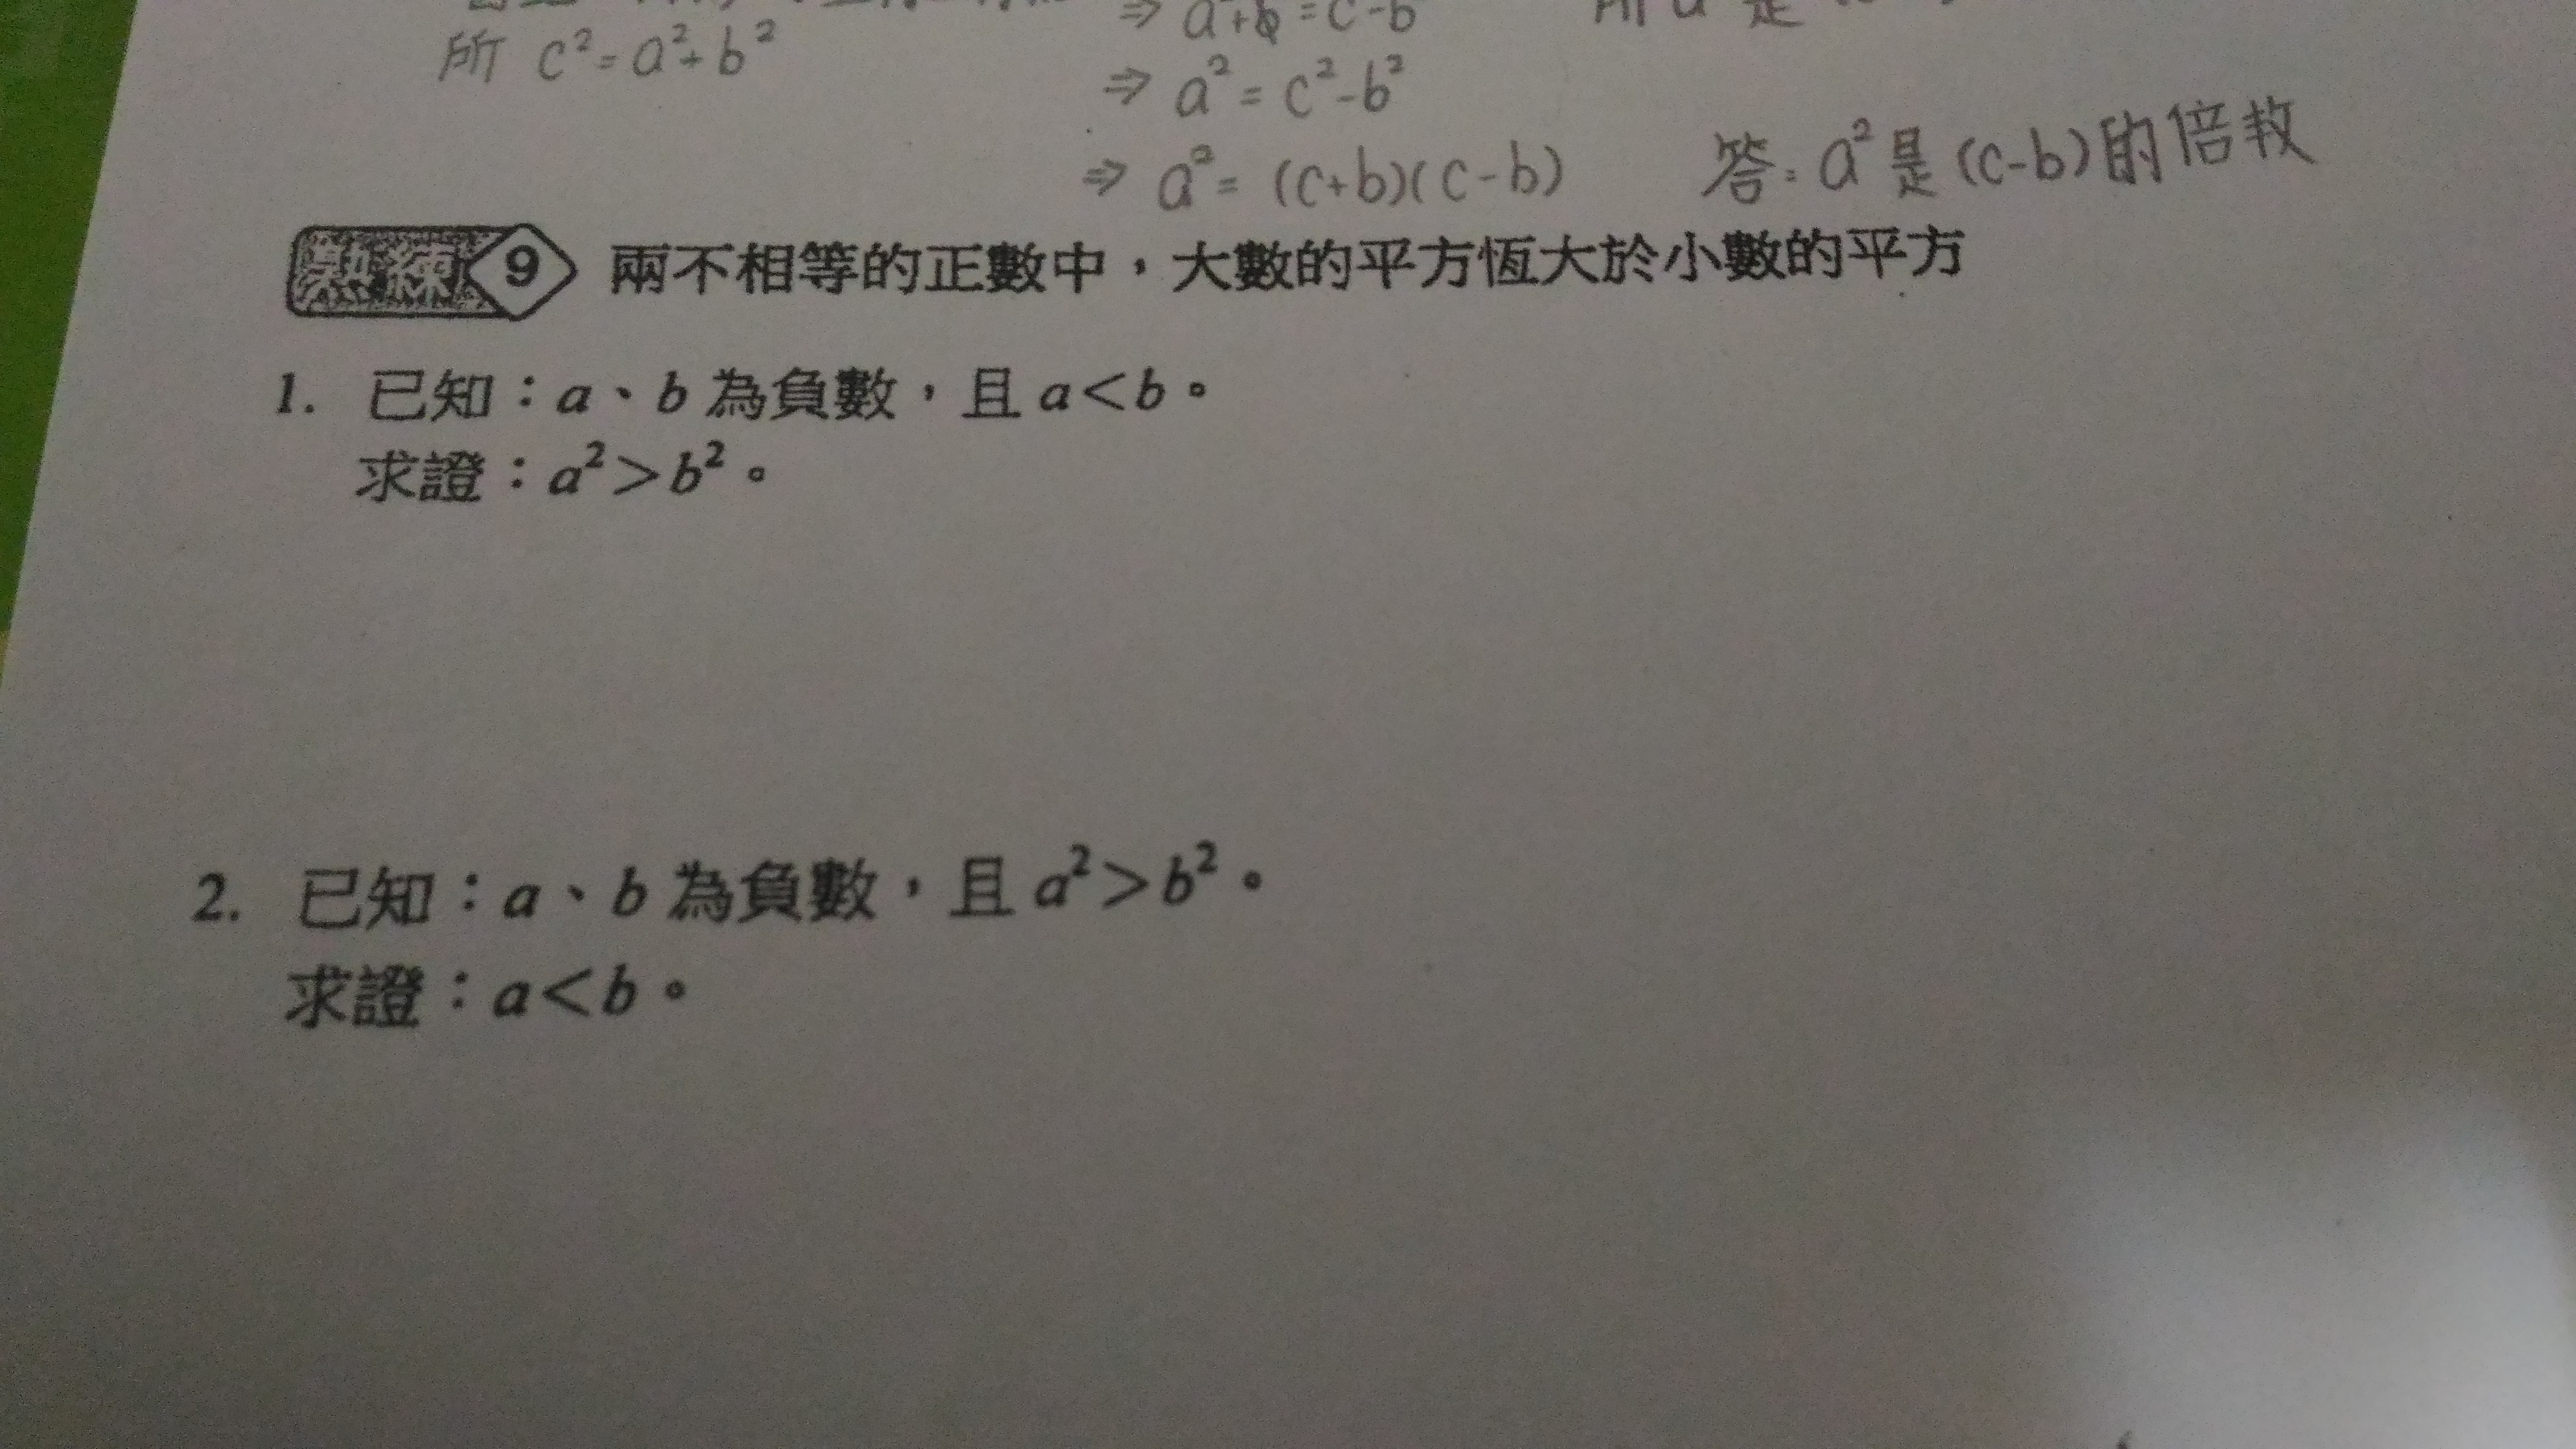 ⇒ a²+b²=c²-b²
所 c²=a²+b²
⇒ a²=c²-b²
⇒ a²=(c+b)(c-b)
答:a²是(c-b)的倍数
熟練 9 兩不相等的正數中,大數的平方恆大於小數的平方
1. 已知:a、b 為負數,且 a<b。
求證:a²>b²。
2. 已知:a、b 為負數,且 a²>b²。
求證:a<b。